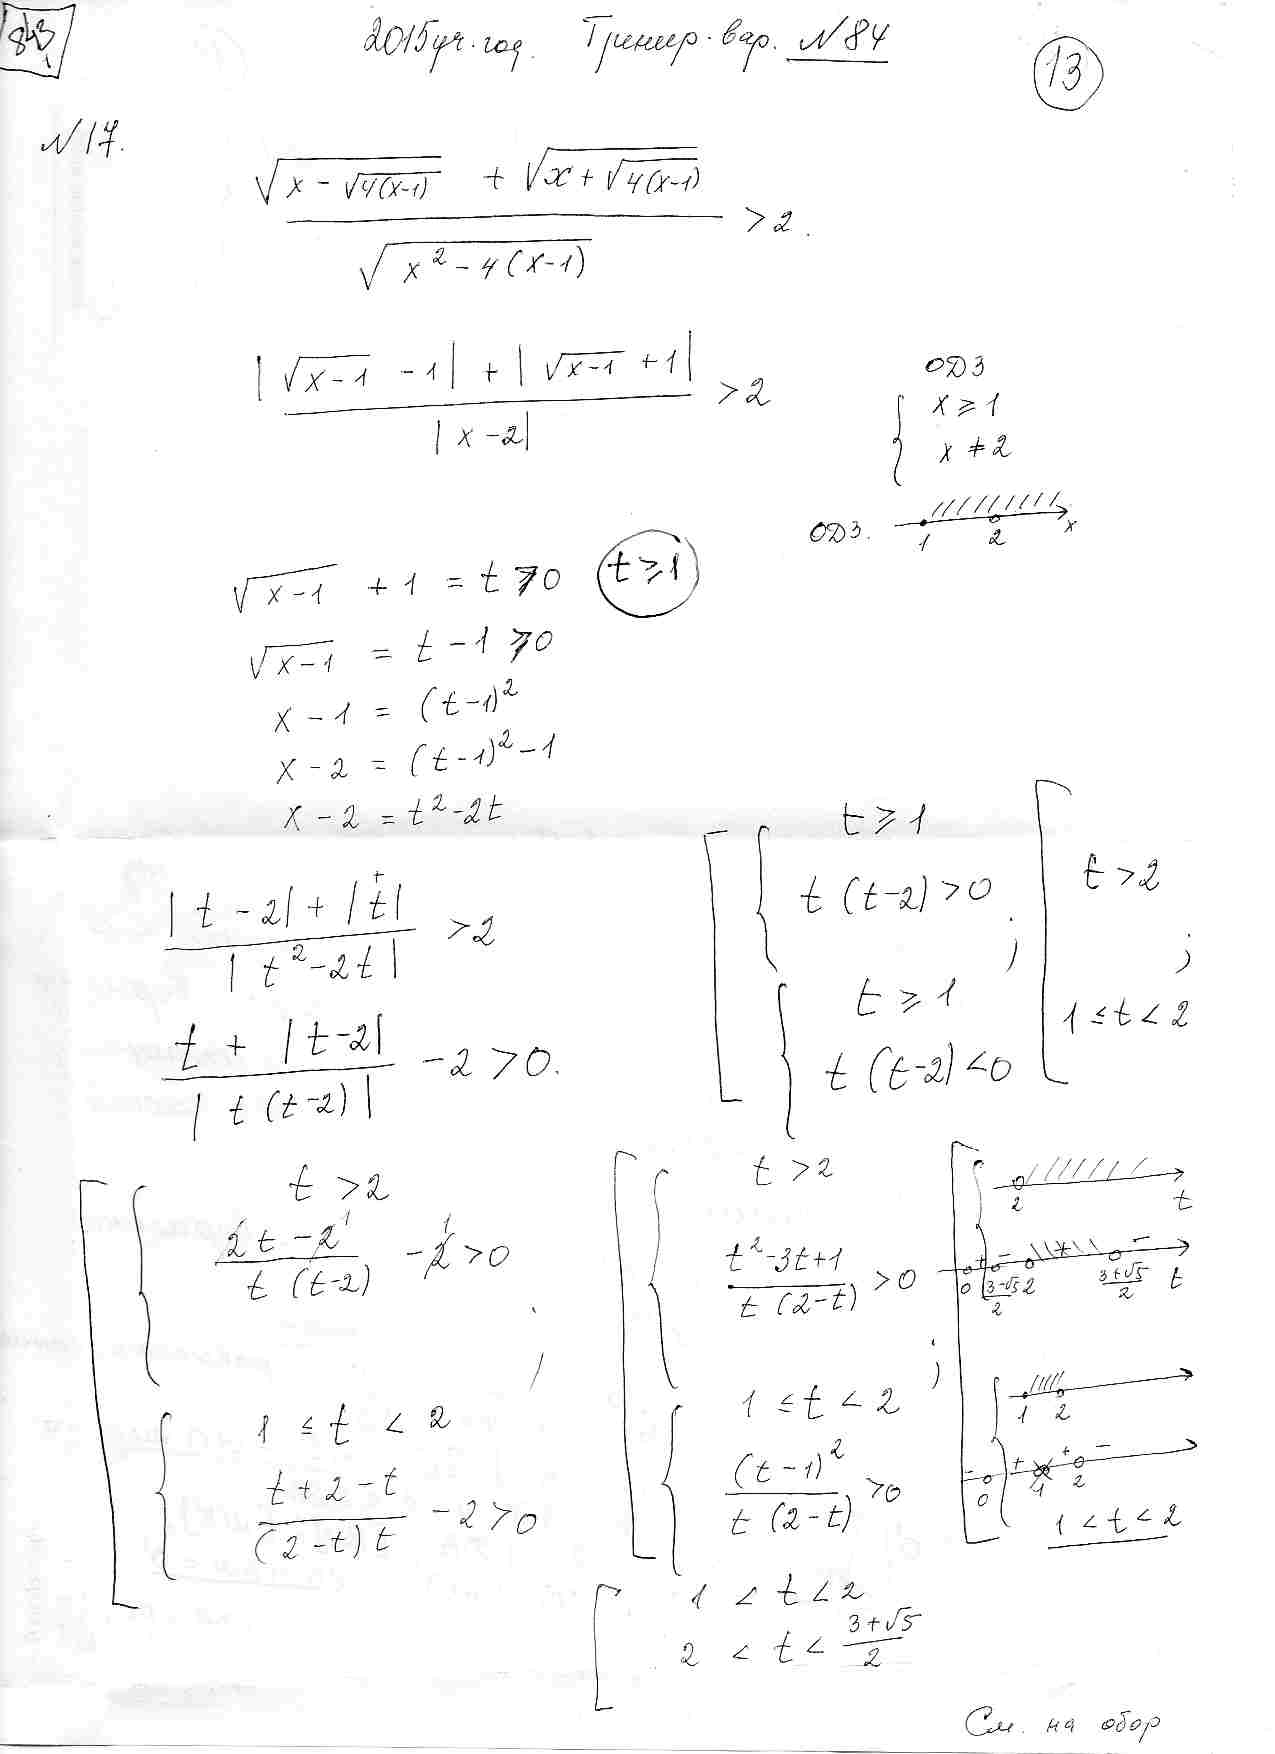 843
1
2015 уч. год. Тренир. вар. №84
13
№17.
√(x - √(4(x-1))) + √(x + √(4(x-1)))
√(x² - 4(x-1))
> 2.
|√(x-1) - 1| + |√(x-1) + 1|
|x-2|
> 2
ОДЗ
x ≥ 1
x ≠ 2
ОДЗ. 1 2 x
√(x-1) + 1 = t ≥ 0 t ≥ 1
√(x-1) = t - 1 ≥ 0
x - 1 = (t-1)²
x - 2 = (t-1)² - 1
x - 2 = t² - 2t
|t - 2| + |t|
+
|t² - 2t|
> 2
t + |t-2|
|t(t-2)|
- 2 > 0.
t ≥ 1
t(t-2) > 0
;
t ≥ 1
t(t-2) < 0
t > 2
;
1 ≤ t < 2
t > 2
2t - 2 1
t(t-2)
- 2 > 0
1
;
1 ≤ t < 2
t + 2 - t
(2-t)t
- 2 > 0
t > 2
t² - 3t + 1
t(2-t)
> 0
;
1 ≤ t < 2
(t-1)²
t(2-t)
> 0
2 t
+ - * -
0 (3-√5)/2 2 (3+√5)/2 t
1 2
- + + -
0 1 2
1 < t < 2
1 < t < 2
2 < t < (3+√5)/2
См. на обор